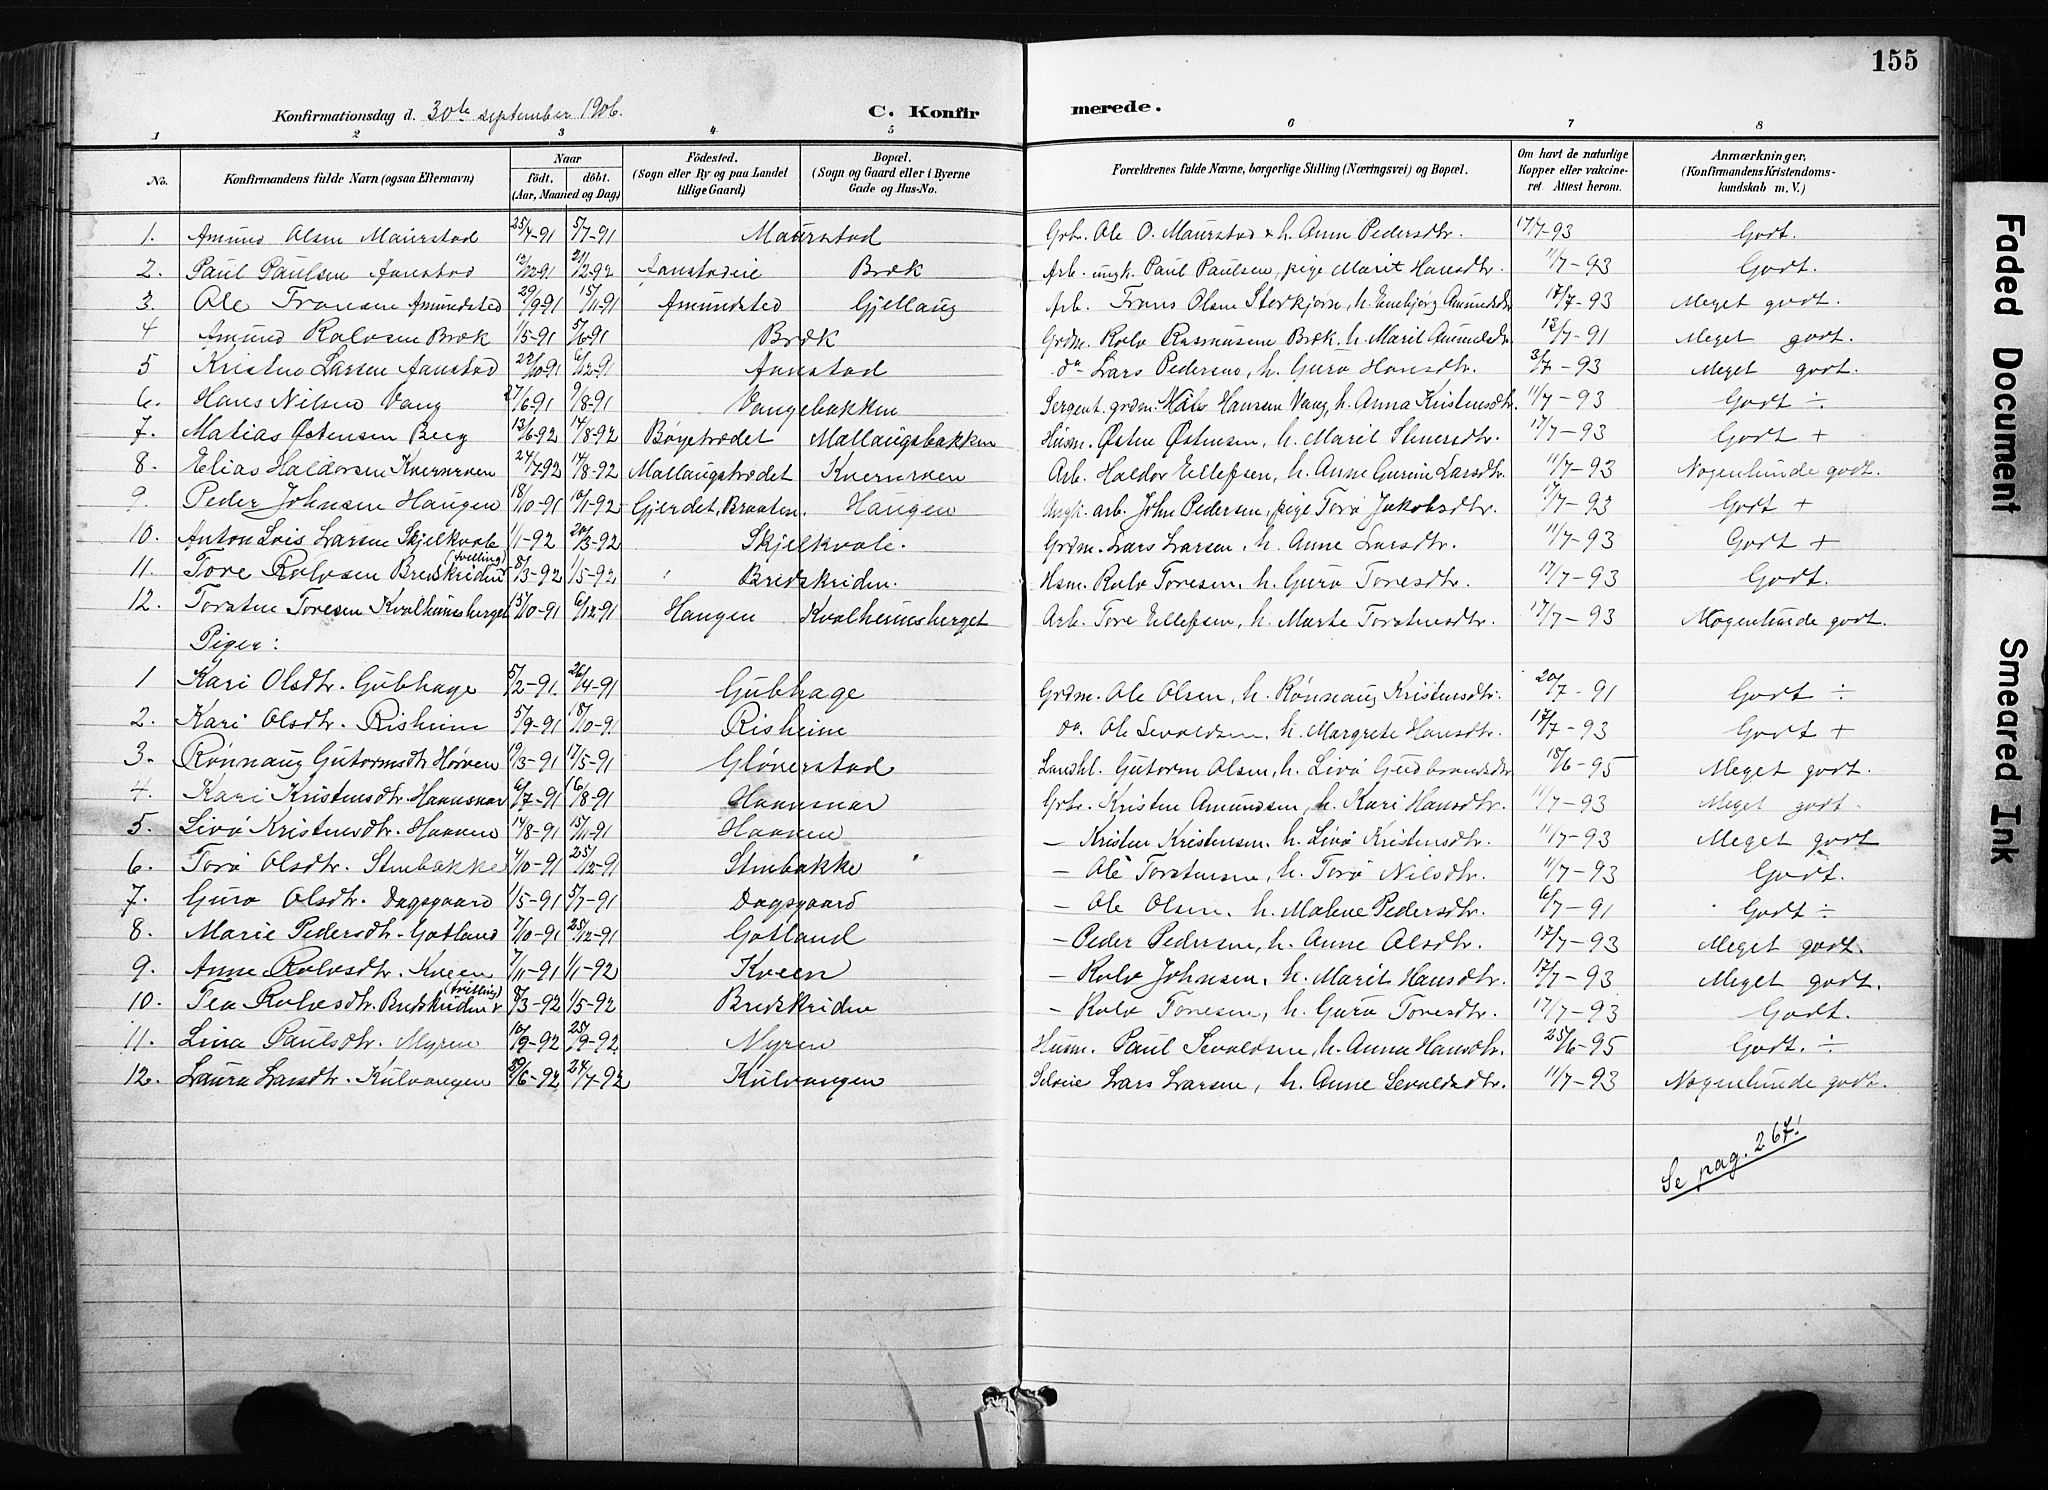 155
Konfirmationsdag d. 30te september 1906. C. Konfirmerede.
1 2 3 4 5 6 7 8
No. Konfirmandens fulde Navn (ogsaa Efternavn) Naar født, døbt. (Aar, Maaned og Dag) Fødested. (Sogn eller By og paa Landet tillige Gaard) Bopæl. (Sogn og Gaard eller i Byerne Gade og Hus-No. Forældrenes fulde Navne, borgerlige Stilling (Næringsvei) og Bopæl. Om havt de naturlige Kopper eller vakcineret Attest herom. Anmærkninger. (Konfirmandens Kristendomskundskab m. V.)
1. Amund Olsen Maurstad 25/4-91 5/7-91 Maurstad Grbr. Ole O. Maurstad & h. Anne Pedersdtr. 17/7-93 Godt.
2. Paul Paulsen Aanstad 12/12-91 21/12-92 Aanstadeie Bræk Arb. ungk. Paul Paulsen, pige Marit Hansdtr. 11/7-93 Godt.
3. Ole Fransen Amundsted 29/9-91 15/11-91 Amundsted Gjellaug Arb. Frans Olsen Storkjørn, h. Ennbjørg Amundsdtr. 17/7-93 Meget godt.
4 Amund Rolvsen Bræk 1/5-91 5/6-91 Bræk Grdm. Rolv Rasmusen Bræk, h. Marit Amundsdtr. 12/7-91 Meget godt.
5 Kristen Larsen Aanstad 22/10-91 6/12-91 Aanstad do Lars Pedersen, h. Guro Hansdtr. 3/7-93 Meget godt.
6. Hans Nilsen Vang 27/6-91 9/8-91 Vangsbakken Sergent. grdm. Hansen Vang, h. Anna Kristensdtr. 11/7-93 Godt ÷
7. Matias Østensen Berg 13/6-92 14/8-92 Bøyetrædet Mallaugsbakken Husm. Østen Østensen, h. Marit Stenersdtr. 17/7-93 Godt +
8. Elias Haldorsen Kvernrven 24/7-92 14/8-92 Mallaugstrædet Kvernrven Arb. Haldor Ellefsen, h. Anne Gurine Larsdtr. 11/7-93 Nogenlunde godt.
9. Peder Johnsen Haugen 18/10-91 10/1-92 Gjerdet, Braaten. Haugen Ungk. arb. John Pedersen, pige Torø Jakobsdtr. 17/7-93 Godt +
10. Anton Lois Larsen Skjelkvale 1/1-92 20/3-92 Skjelkvale. Grdm. Lars Larsen, h. Anne Larsdtr. 11/7-93 Godt +
11. Tore Rolvsen Bredskriden (tvilling) 8/3-92 1/5-92 Bredskriden. Hsm. Rolv Toresen, h. Guro Toresdtr. 17/7-93 Godt.
12. Torsten Toresen Kvalheimsberget 15/10-91 6/12-91 Haugen Kvalheimsberget Arb. Tore Ellefsen, h. Marte Torstensdtr. 17/7-93 Nogenlunde godt.
Piger:
1 Kari Olsdtr. Gubhage 5/2-91. 26/4-91 Gubhage Grdm. Ole Olsen, h. Rønnaug Kristensdtr. 20/7-91 Godt ÷
2. Kari Olsdtr. Risheim 5/9-91 18/10-91 Risheim do. Ole Sevaldsen, h. Margrete Hansdtr. 17/7-93 Godt +
3. Rønnaug Gutormsdtr Hørven 19/3-91 17/5-91 Glønerstad Landhl. Gutorm Olsen, h. Livø Gudbrandsdtr 18/6-95 Meget godt.
4. Kari Kristensdtr. Haansnar 6/7-91 16/8-91 Haansnar Grbr. Kristen Amundsen, h. Kari Hansdtr. 11/7-93 Meget godt.
5. Livø Kristensdtr. Haaven 14/8-91 15/11-91 Haaven — Kristen Kristensen, h. Livø Kristensdtr. 11/7-93 Meget godt
6. Torø Olsdtr. Stenbakke 4/10-91 25/12-91 Stenbakke — Ole Torstensen, h. Torø Nilsdtr. 11/7-93 Godt.
7. Guro Olsdtr. Dagsgaard 1/5-91 5/7-91 Dagsgaard — Ole Olsen. h. Malene Pedersdtr. 6/7-91 Godt ÷
8. Marie Pedersdtr. Gotland 7/10-91 25/12-91 Gotland — Peder Pedersen, h. Anne Olsdtr. 17/7-93 Meget godt.
9. Anne Rolvsdtr. Kveen 7/11-91 1/1-92 Kveen — Rolv Johnsen, h. Marit Hansdtr. 17/7-93 Meget godt.
10. Tea Rolvsdtr. Bredskriden (tvilling) 8/3-92 1/5-92 Bredskriden — Rolv Toresen, h. Guro Toresdtr. 17/7-93 Godt.
11. Lina Paulsdtr. Myren 10/9-92 25/9-92 Myren Husm. Paul Sevaldsen, h. Anna Hansdtr. 25/6-95 Godt. ÷
12. Laura Larsdtr. Kulvangen 29/6-92 24/7-92 Kulvangen Seleie Lars Larsen, h. Anne Sevaldsdtr. 11/7-93 Nogenlunde godt.
Se pag. 267!
Faded Document
Smeared Ink